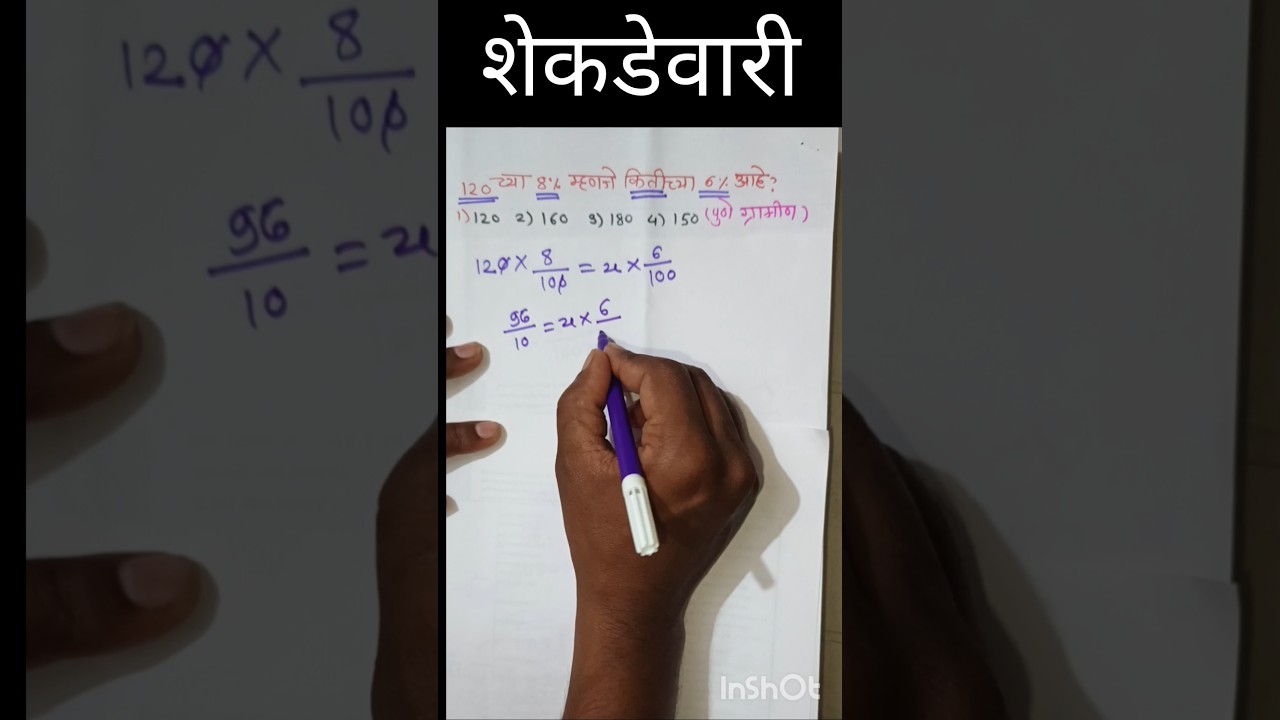 शेकडेवारी
120 च्या 8% म्हणजे कितीच्या 6% आहे?
1) 120 2) 160 3) 180 4) 150 (पुणे ग्रामीण)
120 × 8/100 = x × 6/100
96/10 = x × 6/
InShOt
120 × 8/100
96/10 = x